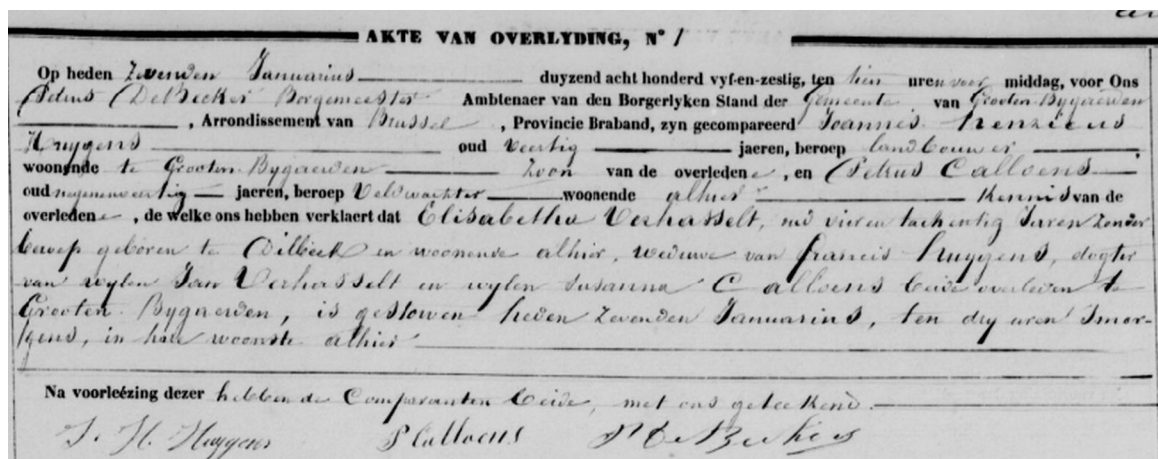 AKTE VAN OVERLYDING, N° 1
Op heden Zevenden Januarius duyzend acht honderd vyf-en-zestig, ten tien uren voor middag, voor Ons
Petrus DeBecker Borgemeester Ambtenaer van den Borgerlyken Stand der Gemeente van Grooten-Bygaerden
, Arrondissement van Brussel, Provincie Braband, zyn gecompareerd Joannes Henricus
Huygens oud veertig jaeren, beroep landbouwer,
woonende te Grooten-Bygaerden Zoon van de overledene, en Petrus Calloens
oud negenenveertig jaeren, beroep Veldwachter woonende alhier Kennis van de
overledene, de welke ons hebben verklaert dat Elisabetha Verhasselt, oud vier en tachentig Jaren Zonder
beroep geboren te Dilbeek en woonende alhier, weduwe van francis Huygens, dogter
van wylen Jan Verhasselt en wylen Susanna Calloens beide overleden te
Grooten-Bygaerden, is gestorven heden Zevenden Januarius, ten dry uren Smor-
gens, in hare woonste alhier
Na voorleézing dezer hebben de Comparanten beide, met ons geteekend.
J. H. Huygens P Calloens P De Becker